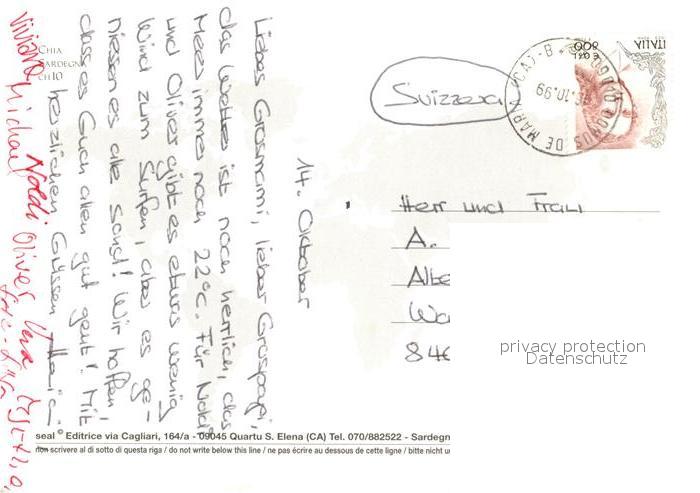 CHIA
SARDEGNA
CH 10
14. Oktober
Liebes Grosmami, lieber Grospapi,
das Wetter ist noch herrlich, das
Meer immer noch 22°C. Für Noldi
und Oliver gibt es etwas wenig
Wind zum Surfen, aber es ge-
niesen es alle sonst! Wir hoffen,
dass es Euch allen gut geht! Mit
herzlichen Grüssen
Viviane
Michael Noldi Oliver
Suizzera
ITALIA
600
€ 0,31
09010 DOMUS DE MARIA (CA) - B
.10.99
Herr und Frau
A.
Albe
Wa
840
privacy protection
Datenschutz
seal Editrice via Cagliari, 164/a - 09045 Quartu S. Elena (CA) Tel. 070/882522 - Sardegn
non scrivere al di sotto di questa riga / do not write below this line / ne pas écrire au dessous de cette ligne / bitte nicht u